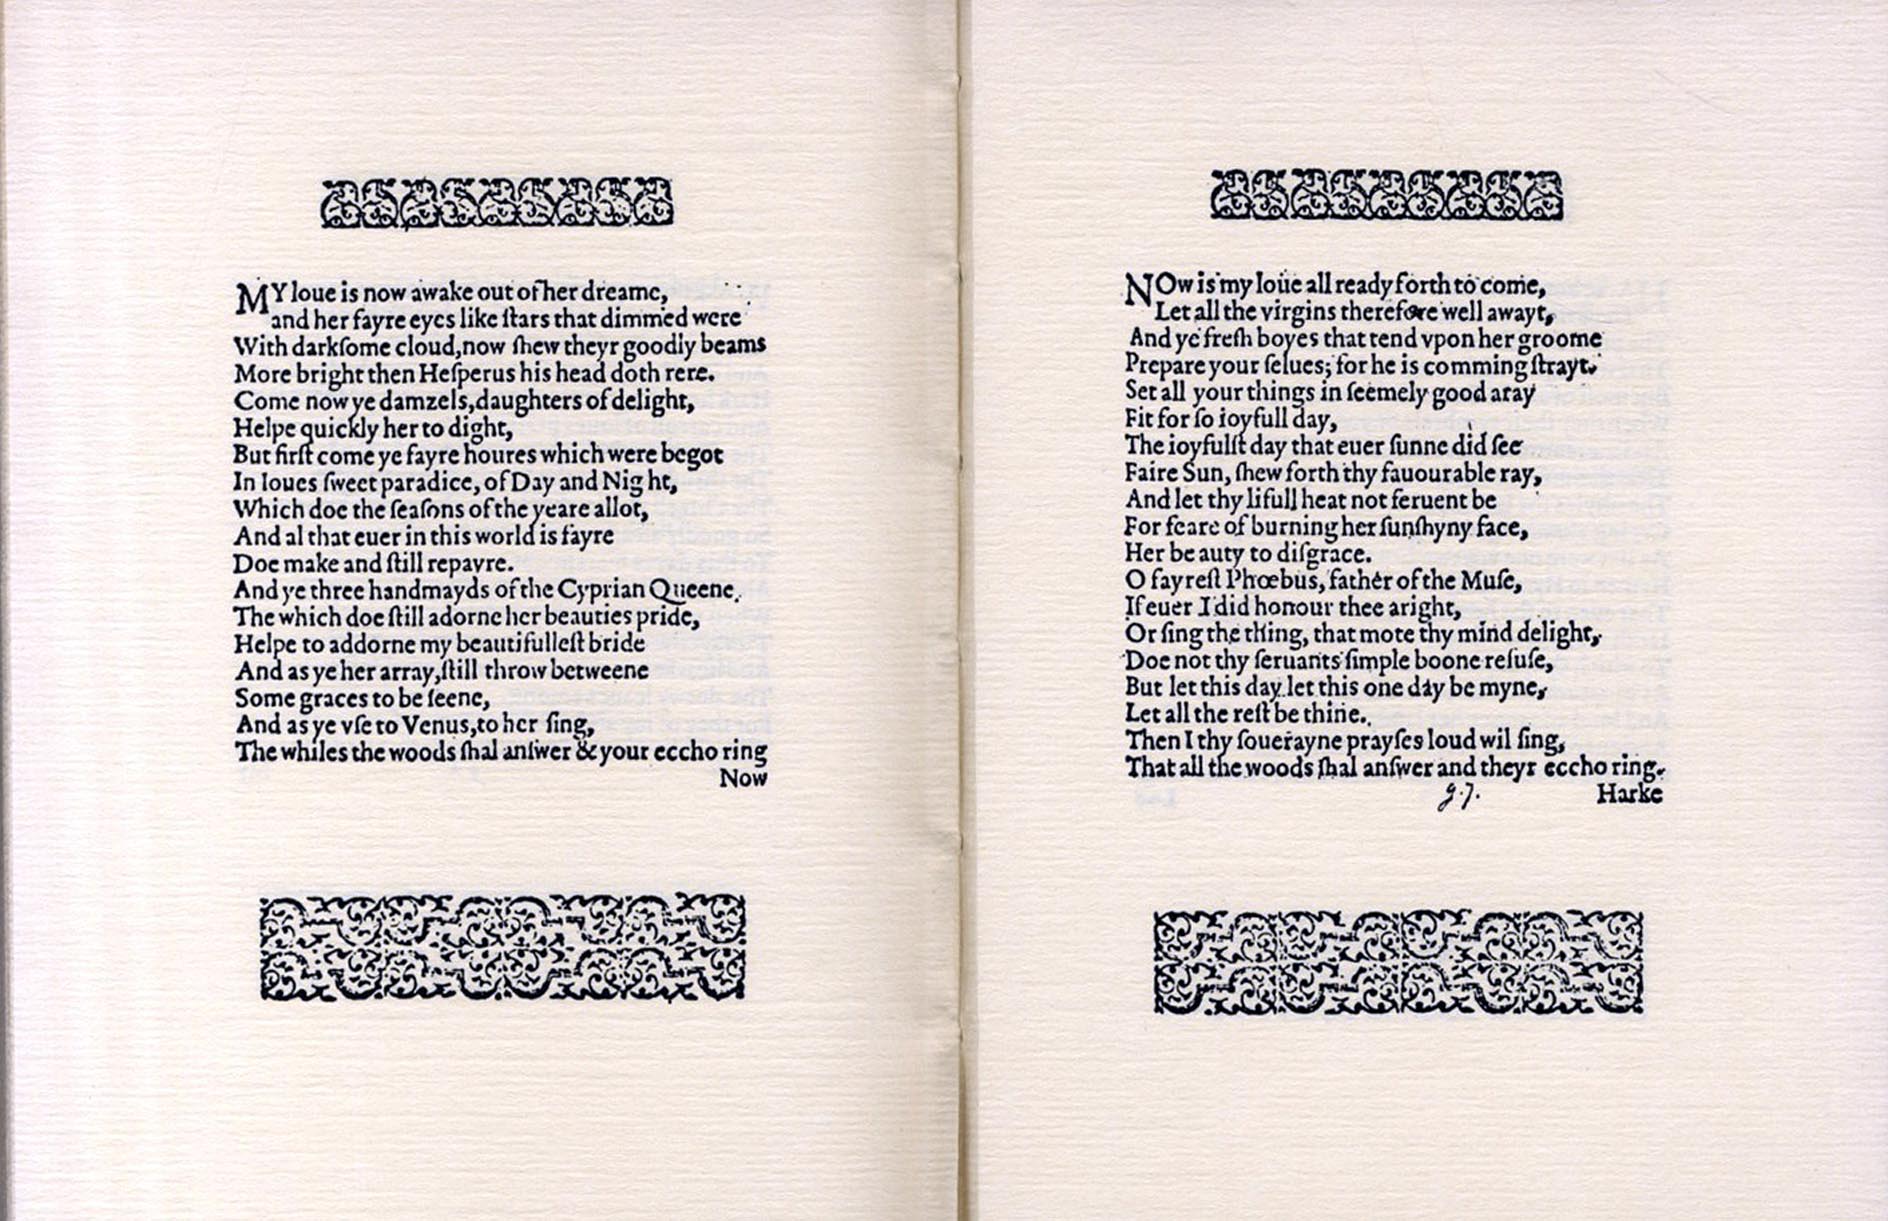 MY loue is now awake out of her dreame,
and her fayre eyes like ſtars that dimmed were
With darkſome cloud,now ſhew theyr goodly beams
More bright then Heſperus his head doth rere.
Come now ye damzels,daughters of delight,
Helpe quickly her to dight,
But firſt come ye fayre houres which were begot
In Ioues ſweet paradice, of Day and Night,
Which doe the ſeaſons of the yeare allot,
And al that euer in this world is fayre
Doe make and ſtill repayre.
And ye three handmayds of the Cyprian Queene,
The which doe ſtill adorne her beauties pride,
Helpe to addorne my beautifulleſt bride
And as ye her array,ſtill throw betweene
Some graces to be ſeene,
And as ye vſe to Venus,to her ſing,
The whiles the woods ſhal anſwer & your eccho ring
Now
NOw is my loue all ready forth to come,
Let all the virgins therefore well awayt,
And ye freſh boyes that tend vpon her groome
Prepare your ſelues; for he is comming ſtrayt.
Set all your things in ſeemely good aray
Fit for ſo ioyfull day,
The ioyfulſt day that euer ſunne did ſee
Faire Sun, ſhew forth thy fauourable ray,
And let thy lifull heat not feruent be
For feare of burning her ſunſhyny face,
Her beauty to diſgrace.
O fayreſt Phœbus, father of the Muſe,
If euer I did honour thee aright,
Or ſing the thing, that mote thy mind delight,
Doe not thy ſeruants ſimple boone refuſe,
But let this day let this one day be myne,
Let all the reſt be thine.
Then I thy ſouerayne prayſes loud wil ſing,
That all the woods ſhal anſwer and theyr eccho ring.
Harke